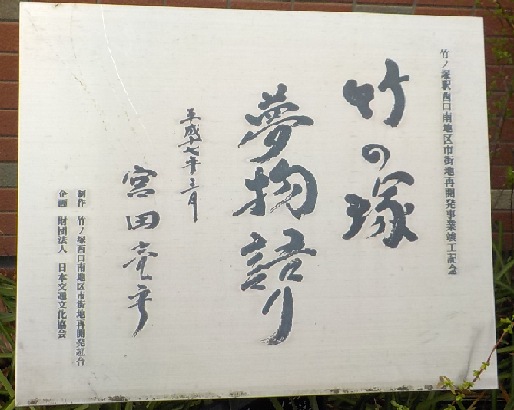 竹ノ塚駅西口南地区市街地再開発事業竣工記念
竹の塚
夢物語り
平成十七年三月
宮田亮平
制作 竹ノ塚西口南地区市街地再開発組合
企画 財団法人 日本交通文化協会